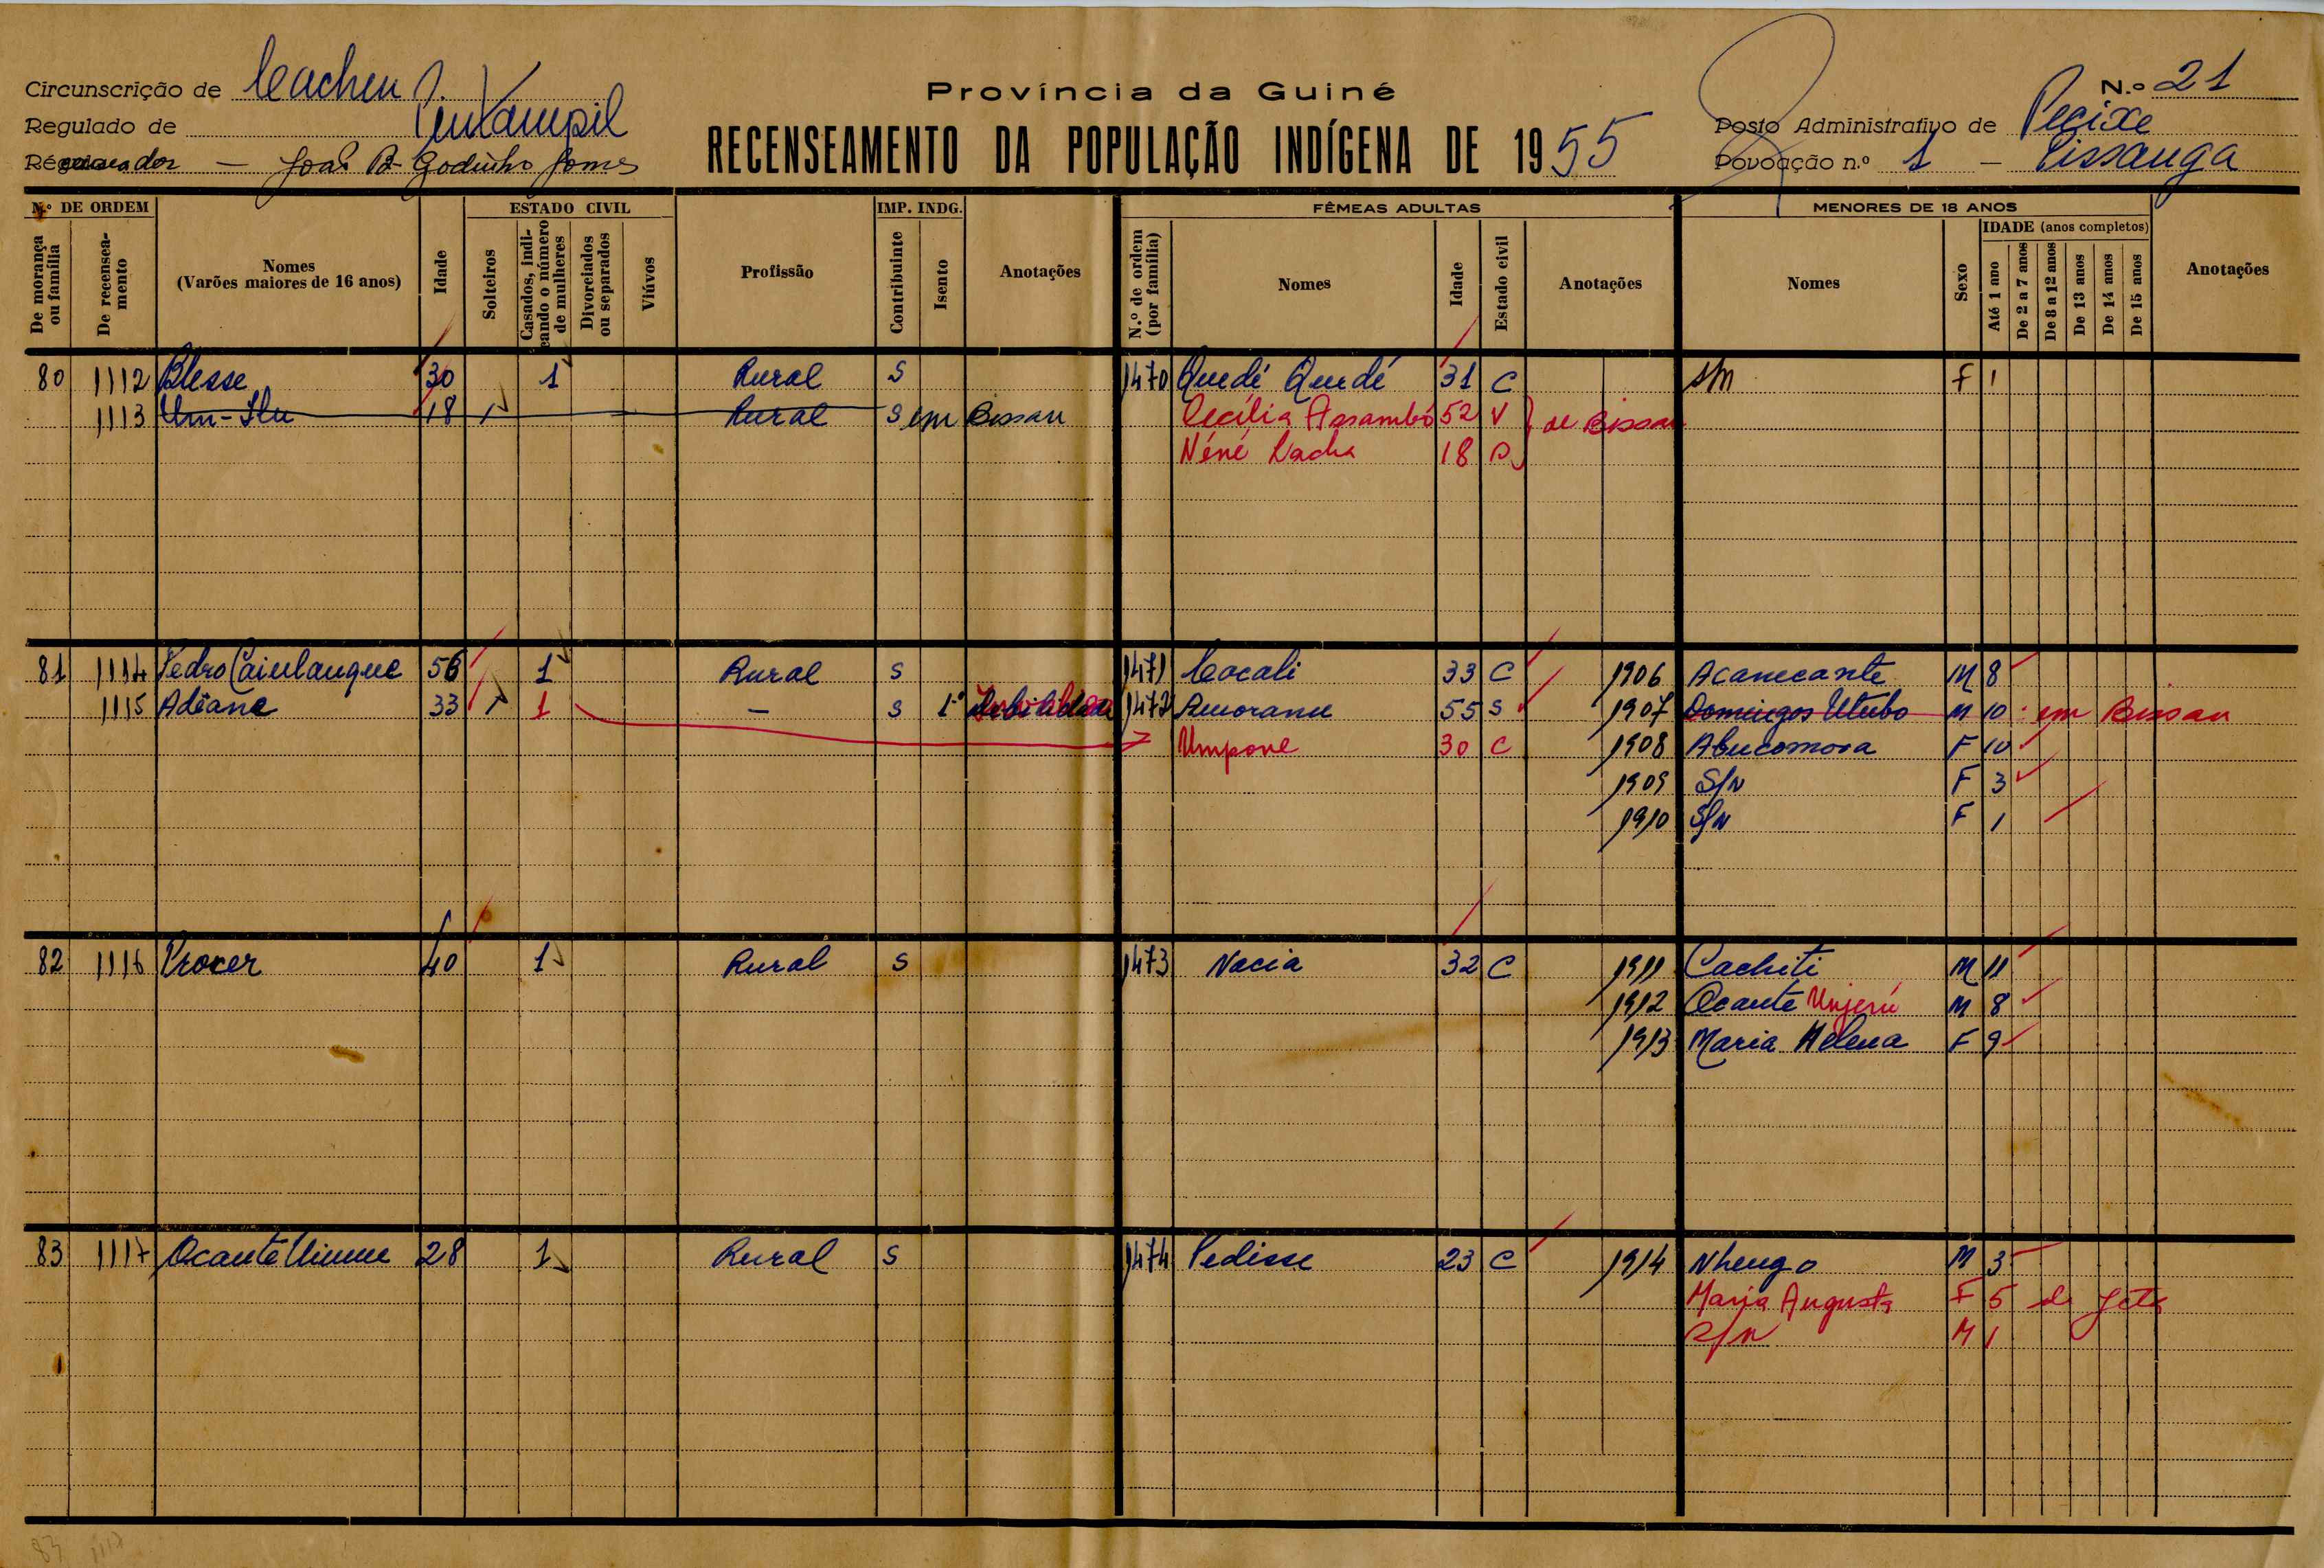 Circunscrição de Cacheu
Regulado de
João B. Godinho Gomes
Província da Guiné
RECENSEAMENTO DA POPULAÇÃO INDÍGENA DE 1955
N.º 21
Posto Administrativo de Pecixe
Povoação n.º 1 –
N.º DE ORDEM
De morança ou família
De recenseamento
Nomes
(Varões maiores de 16 anos)
Idade
ESTADO CIVIL
Solteiros
Casados, indicando o número de mulheres
Divorciados ou separados
Viúvos
Profissão
IMP. INDG.
Contribuinte
Isento
Anotações
FÊMEAS ADULTAS
N.º de ordem (por família)
Nomes
Idade
Estado civil
Anotações
MENORES DE 18 ANOS
Nomes
Sexo
IDADE (anos completos)
Até 1 ano
De 2 a 7 anos
De 8 a 12 anos
De 13 anos
De 14 anos
De 15 anos
Anotações
80 1112 Blesse 30 1 Rural S 1470 Quedé Quedé 31 C F 1
1113 18 1 Rural S em Bissau Cecília 52 V de Bissau
Néné 18 S
81 1114 Pedro 56 1 Rural S 1471 Cacali 33 C 1906 Acanecante M 8
1115 Adiane 33 1 1 – S 1472 55 S 1907 Domingos M 10 em Bissau
Umpone 30 C 1908 Abucomosa F 10
1909 S/N F 3
1910 S/N F 1
82 1116 40 1 Rural S 1473 Nacia 32 C 1911 Cachiti M 11
1912 Ocante M 8
1913 Maria Helena F 9
83 1117 Ocante 28 1 Rural S 1474 Pedisse 23 C 1914 Nhengo M 3
Maria Augusta F 5 de Jeta
S/N M 1
83 1117